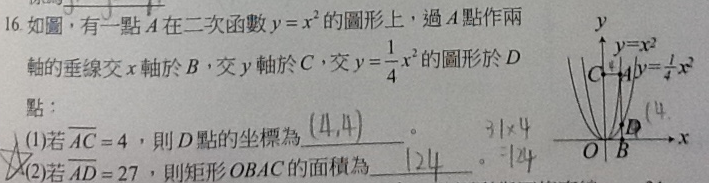 16. 如圖，有一點 A 在二次函數 y = x² 的圖形上，過 A 點作兩
軸的垂線交 x 軸於 B，交 y 軸於 C，交 y = 1/4 x² 的圖形於 D
點：
(1)若 AC = 4，則 D 點的坐標為 (4,4) 。
31×4
(2)若 AD = 27，則矩形 OBAC 的面積為 124 。
=124
y
y=x²
C 4 A y=1/4 x²
D (4.
O B x